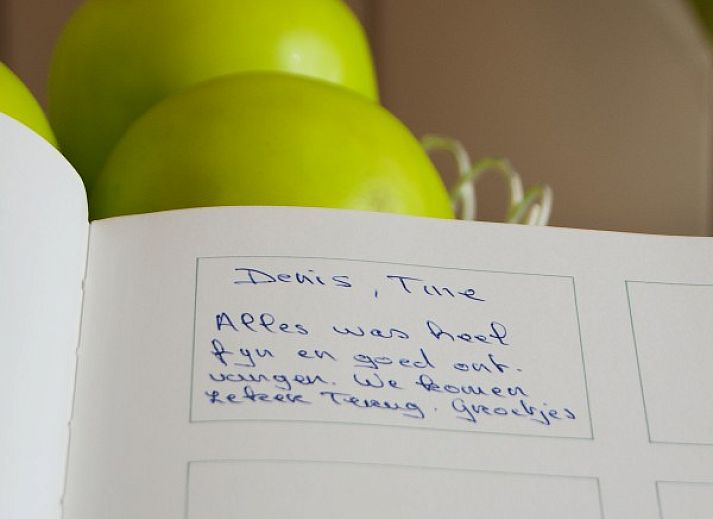 Denis, Tine
Alles was heel
fyn en goed ont-
vangen. We komen
zeker Terug. Groetjes